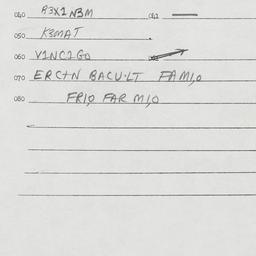 040 R3X1NBM 042 —
050 K3MAT
060 V1NC2GO
070 ERC+N BACU·LT FAM1,0
080 FR1,0 FAR M1,0